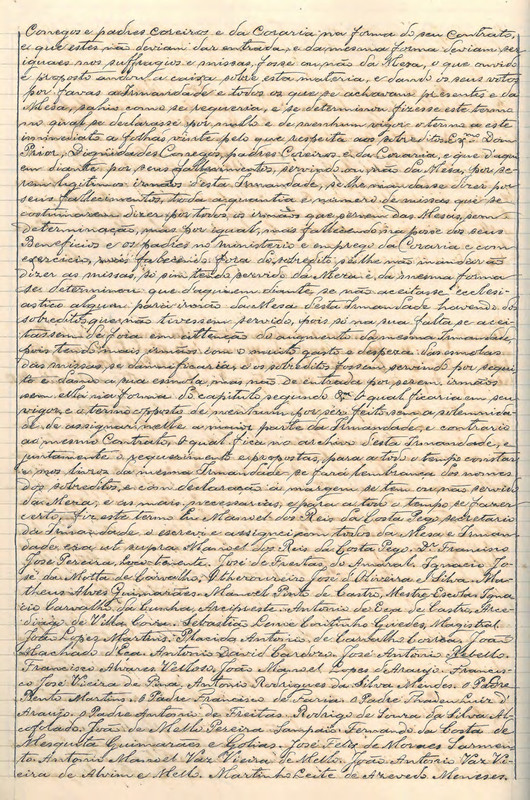 Conegos e padres Coreiros e da Coraria na forma do seu Contrato,
e que estes não deviam dar entrada, e da mesma forma deviam ser
iguaes nos suffragios e missas, fosse ou não da Mesa, o que ouvido
e proposto andou a caixa sobre esta materia, e dando os seus votos
por favas a Irmandade e todos os que se achavam presentes e da
Mesa, sahio como se requeria, e se determinou fizesse este termo
no qual se declarasse por nullo e de nenhum vigor o termo a este
immediato a folhas vinte pelo que respeita aos sobreditos Exmo Dom
Prior, Dignidades Conegos, padres Coreiros e da Coraria, e que d'aqui
em diante por seus fallecimentos, servindo ou não da Mesa, por se-
rem legitimos irmãos d'esta Irmandade, se lhe mandasse dizer por
seus fallecimentos, toda a quantia e numero de missas que se
costumarem dizer por todos os irmãos que servem das Mesas, sem
determinação, mas por igual, mas fallecendo na posse dos seus
Beneficios e os padres no ministerio e emprego da Coraria e com
exercicio, mais fallecendo fora do sobredito, se lhe não mandarão
dizer as missas, só sim tendo servido da Meza e da mesma forma
se determinou que d'aqui em diante, se não aceitasse eclesi-
astico algum para irmão da Mesa desta Irmandade havendo dos
sobreditos que não tivessem servido, pois só na sua falta se acei-
tassem de fora em attenção do augmento da mesma Irmandade,
pois tendo mais irmãos com o muito gasto e despeza das esmolas
das missas, se damnificaria, e os sobreditos fossem servindo por seu
to e dando a sua esmola, mas não de entrada por serem irmãos
sem ella na forma do capitulo segundo o qual ficaria em seu
vigor, e o termo opposto de nenhum por ser feito sem a solemnida-
de de assignar nelle a maior parte da Irmandade, e contrario
ao mesmo Contrato, o qual fica no archivo d'esta Irmandade, e
juntamente o requerimento e propostas, para a todo o tempo constar
e nos livros da mesma Irmandade se fará lembrança dos nomes
dos sobreditos, e com declaração á margem se tem ou não servido
da Meza, e as mais necessarias, e para a todo o tempo se fazer
certo, fiz este termo Eu Manoel dos Reis da Costa Pego, secretario
da Irmandade o escrevi e assignei com todos da Mesa e Irman-
dade era ut supra Manoel dos Reis da Costa Pego. Francisco
José Pereira, José de Freitas do Amaral. Ignacio Jo-
sé da Motta de Carvalho. O thesoureiro José d'Oliveira e Silva. Ma-
theus Alves Guimarães. Manoel Pinto de Castro, Mestre Escola. Igna-
cio Carvalho da Cunha, Arcipreste. Antonio de Eça de Castro, Arce-
diago de Villa Cova. Sebastião Leme Coitinho Guedes, Magistral.
João Lopes Martins. Placido Antonio de Carvalho Corrêa. João
Machado d'Eça. Antonio David Cardozo. José Antonio Rebello.
Francisco Alvares Velloso. João Manoel Lopes de Araujo. Francis-
co José Vieira de Pina. Antonio Rodrigues da Silva Mendes. O Padre
Bento Martins. O Padre Francisco de Faria. O Padre Thadeu Luiz d'
Araujo. O Padre Antonio de Freitas. Rodrigo de Souza da Silva Al-
coforado. João de Mello Pereira Sampaio. Fernando da Costa de
Mesquita Guimarães e Golias. José Felix de Moraes Sarmen-
to. Antonio Manoel Vaz Vieira de Mello. João Antonio Vaz Vi-
eira de Alvim e Mello. Martinho Leite de Azevedo Meneses.